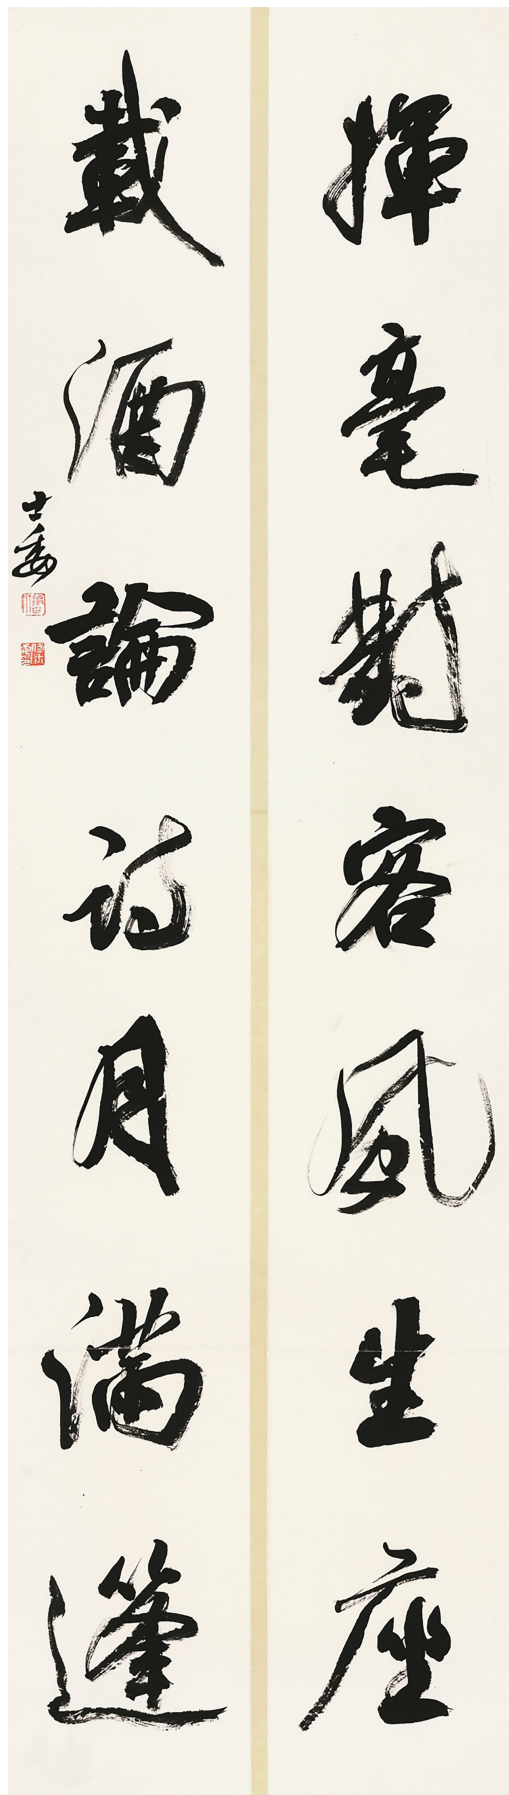 揮毫對客風生座
載酒論詩月滿篷
士委